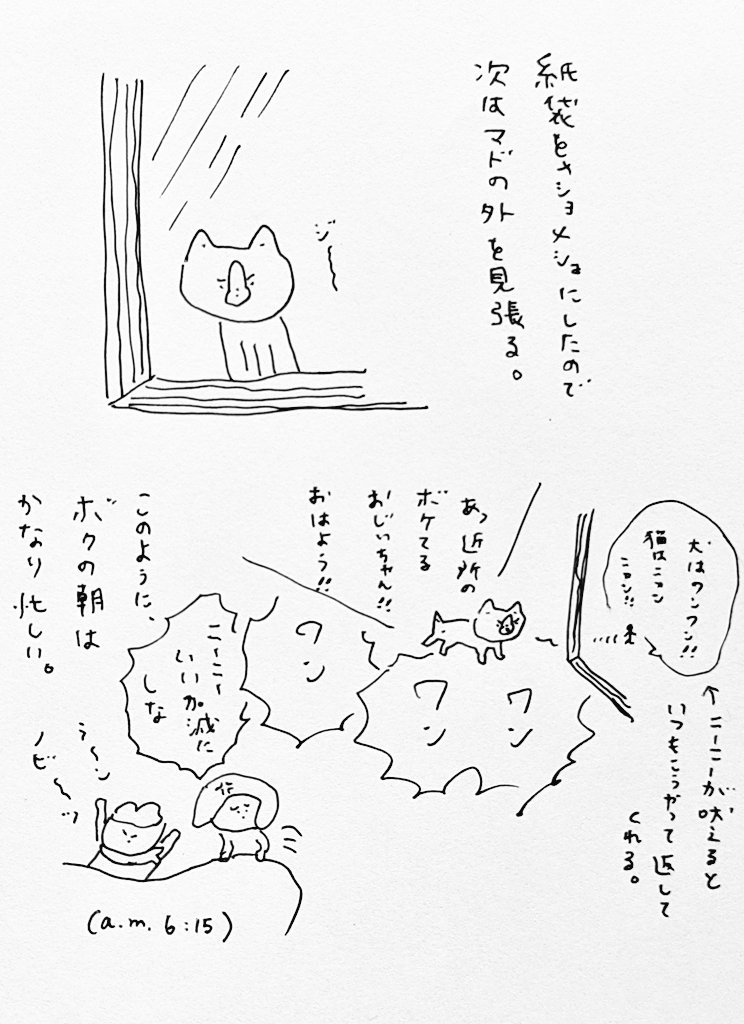 紙袋をメショメショにしたので
次はマドの外を見張る。
ジーー
犬はワンワン!!
猫はニャン
ニャン!!
↑ニーニーが吠えると
いつもこうやって返して
くれる。
あっ近所の
ボケてる
おじいちゃん!!
おはよう!!
ワン
ワン
ワン
ニーニー
いい加減に
しな
このように、
ボクの朝は
かなり忙しい。
う〜ン
ノビ〜〜ッ
(a.m. 6:15)